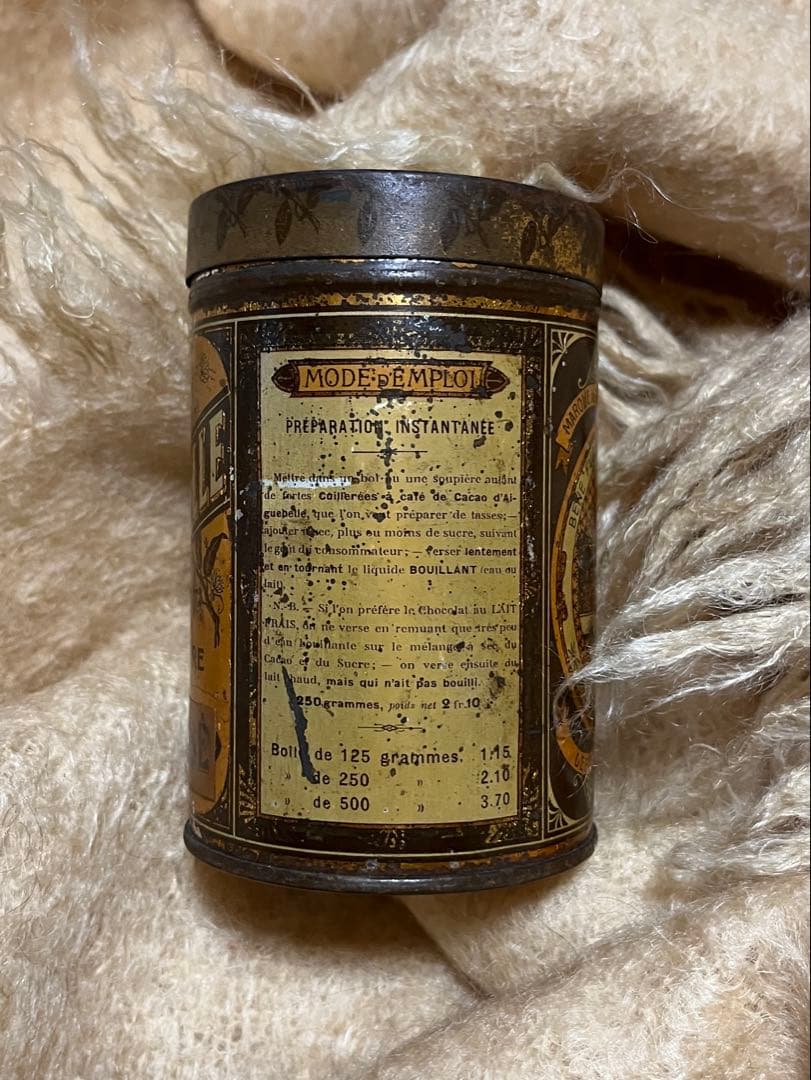 MODE D'EMPLOI
PRÉPARATION INSTANTANÉE
Mettre dans un bol ou une soupière autant
de fortes Cuillerées à café de Cacao d'Ai-
guebelle, que l'on veut préparer de tasses; —
ajouter à sec, plus ou moins de sucre, suivant
le goût du consommateur; — verser lentement
et en tournant le liquide BOUILLANT (eau ou
lait).
N.-B. — Si l'on préfère le Chocolat au LAIT
FRAIS, on ne verse en remuant que très peu
d'eau bouillante sur le mélange à sec du
Cacao et du Sucre; — on verse ensuite du
lait chaud, mais qui n'ait pas bouilli.
250 grammes, poids net 2 fr. 10
Boîte de 125 grammes. 1.15
» de 250 » 2.10
» de 500 » 3.70
LE
RE
MARQUE